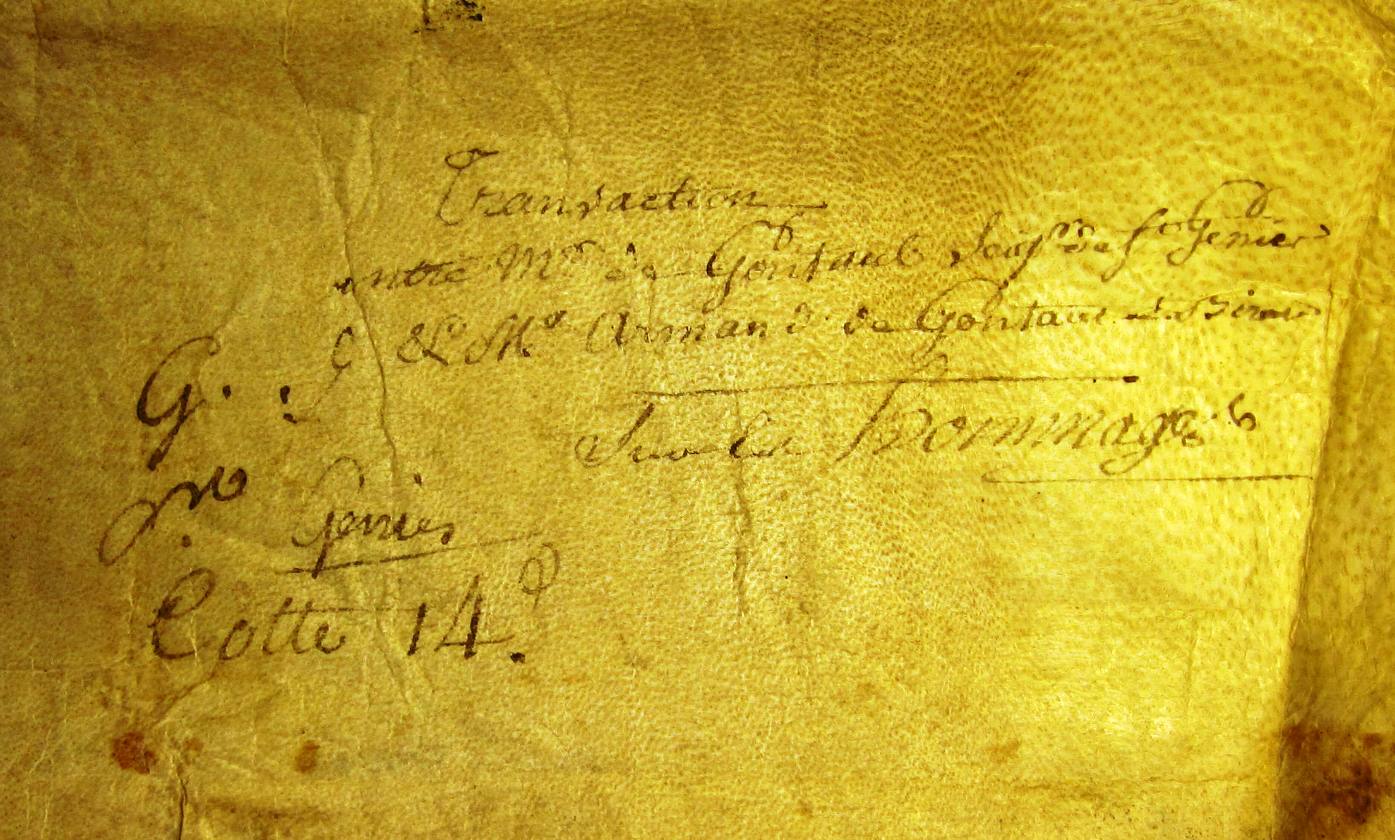 Transaction
entre Mr de Gontaut Seigr de St Genies
& Mr Armand de Gontaut de Biron
Sur les Hommages
G.
Genies
Cotte 14.